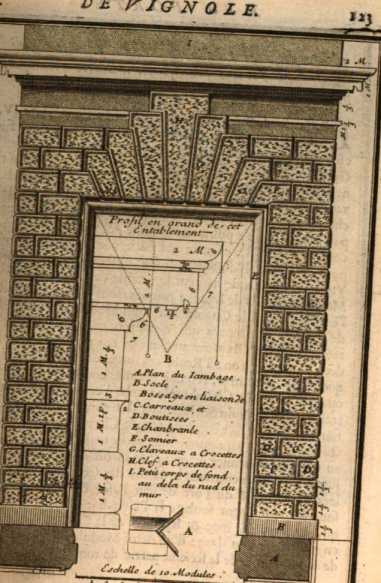 DE VIGNOLE. 123
Profil en grand de cet
Entablement
B
A. Plan du Iambage.
B. Socle.
Bossage en liaison de
C. Carreaux, et
D. Boutisses.
E. Chanbranle
F. Somier
G. Claveaux a Crocettes.
H. Clef a Crocettes.
I. Petit corps de fond
au dela du nud du
mur
A
Eschelle de 10 Modules.